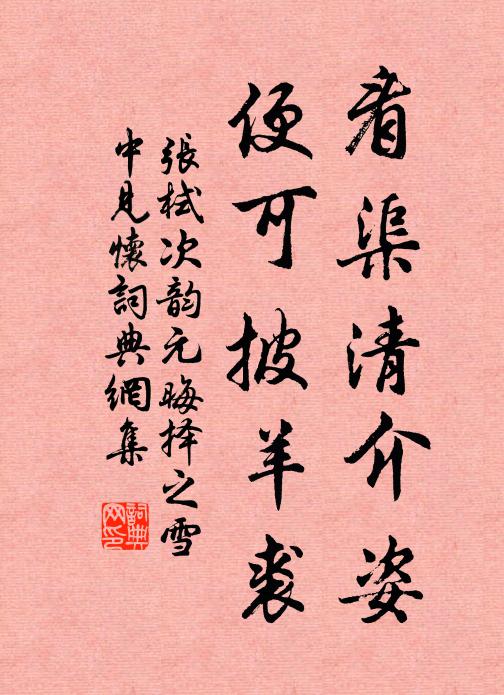 看渠清介姿
便可披羊裘
張栻次韵元晦择之雪
中見懷詞典網集
詞典
网印